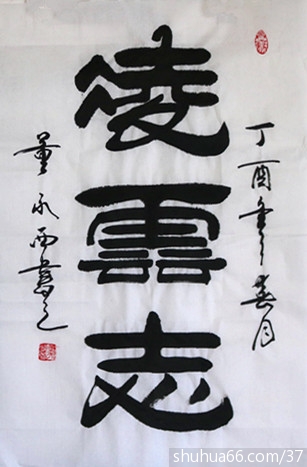 丁酉年春月
凌雲志
董永西書之
shuhua66.com/37